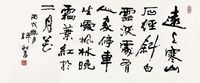 遠上寒山
石徑斜白
雲深處有
人家停車
坐愛楓林晚
霜葉紅於
二月花